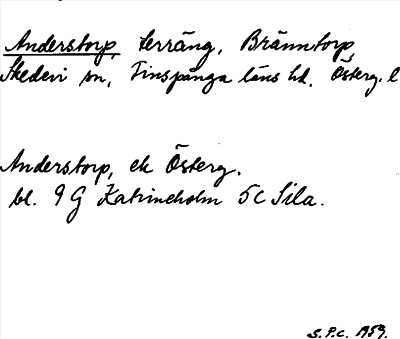 Anderstorp, terräng, Bränntorp,
Skedevi sn, Finspånga läns hd. Österg. l
Anderstorp, ek Österg.
bl. 9 G Katrineholm 5c Sila.
S.P.C. 1959.